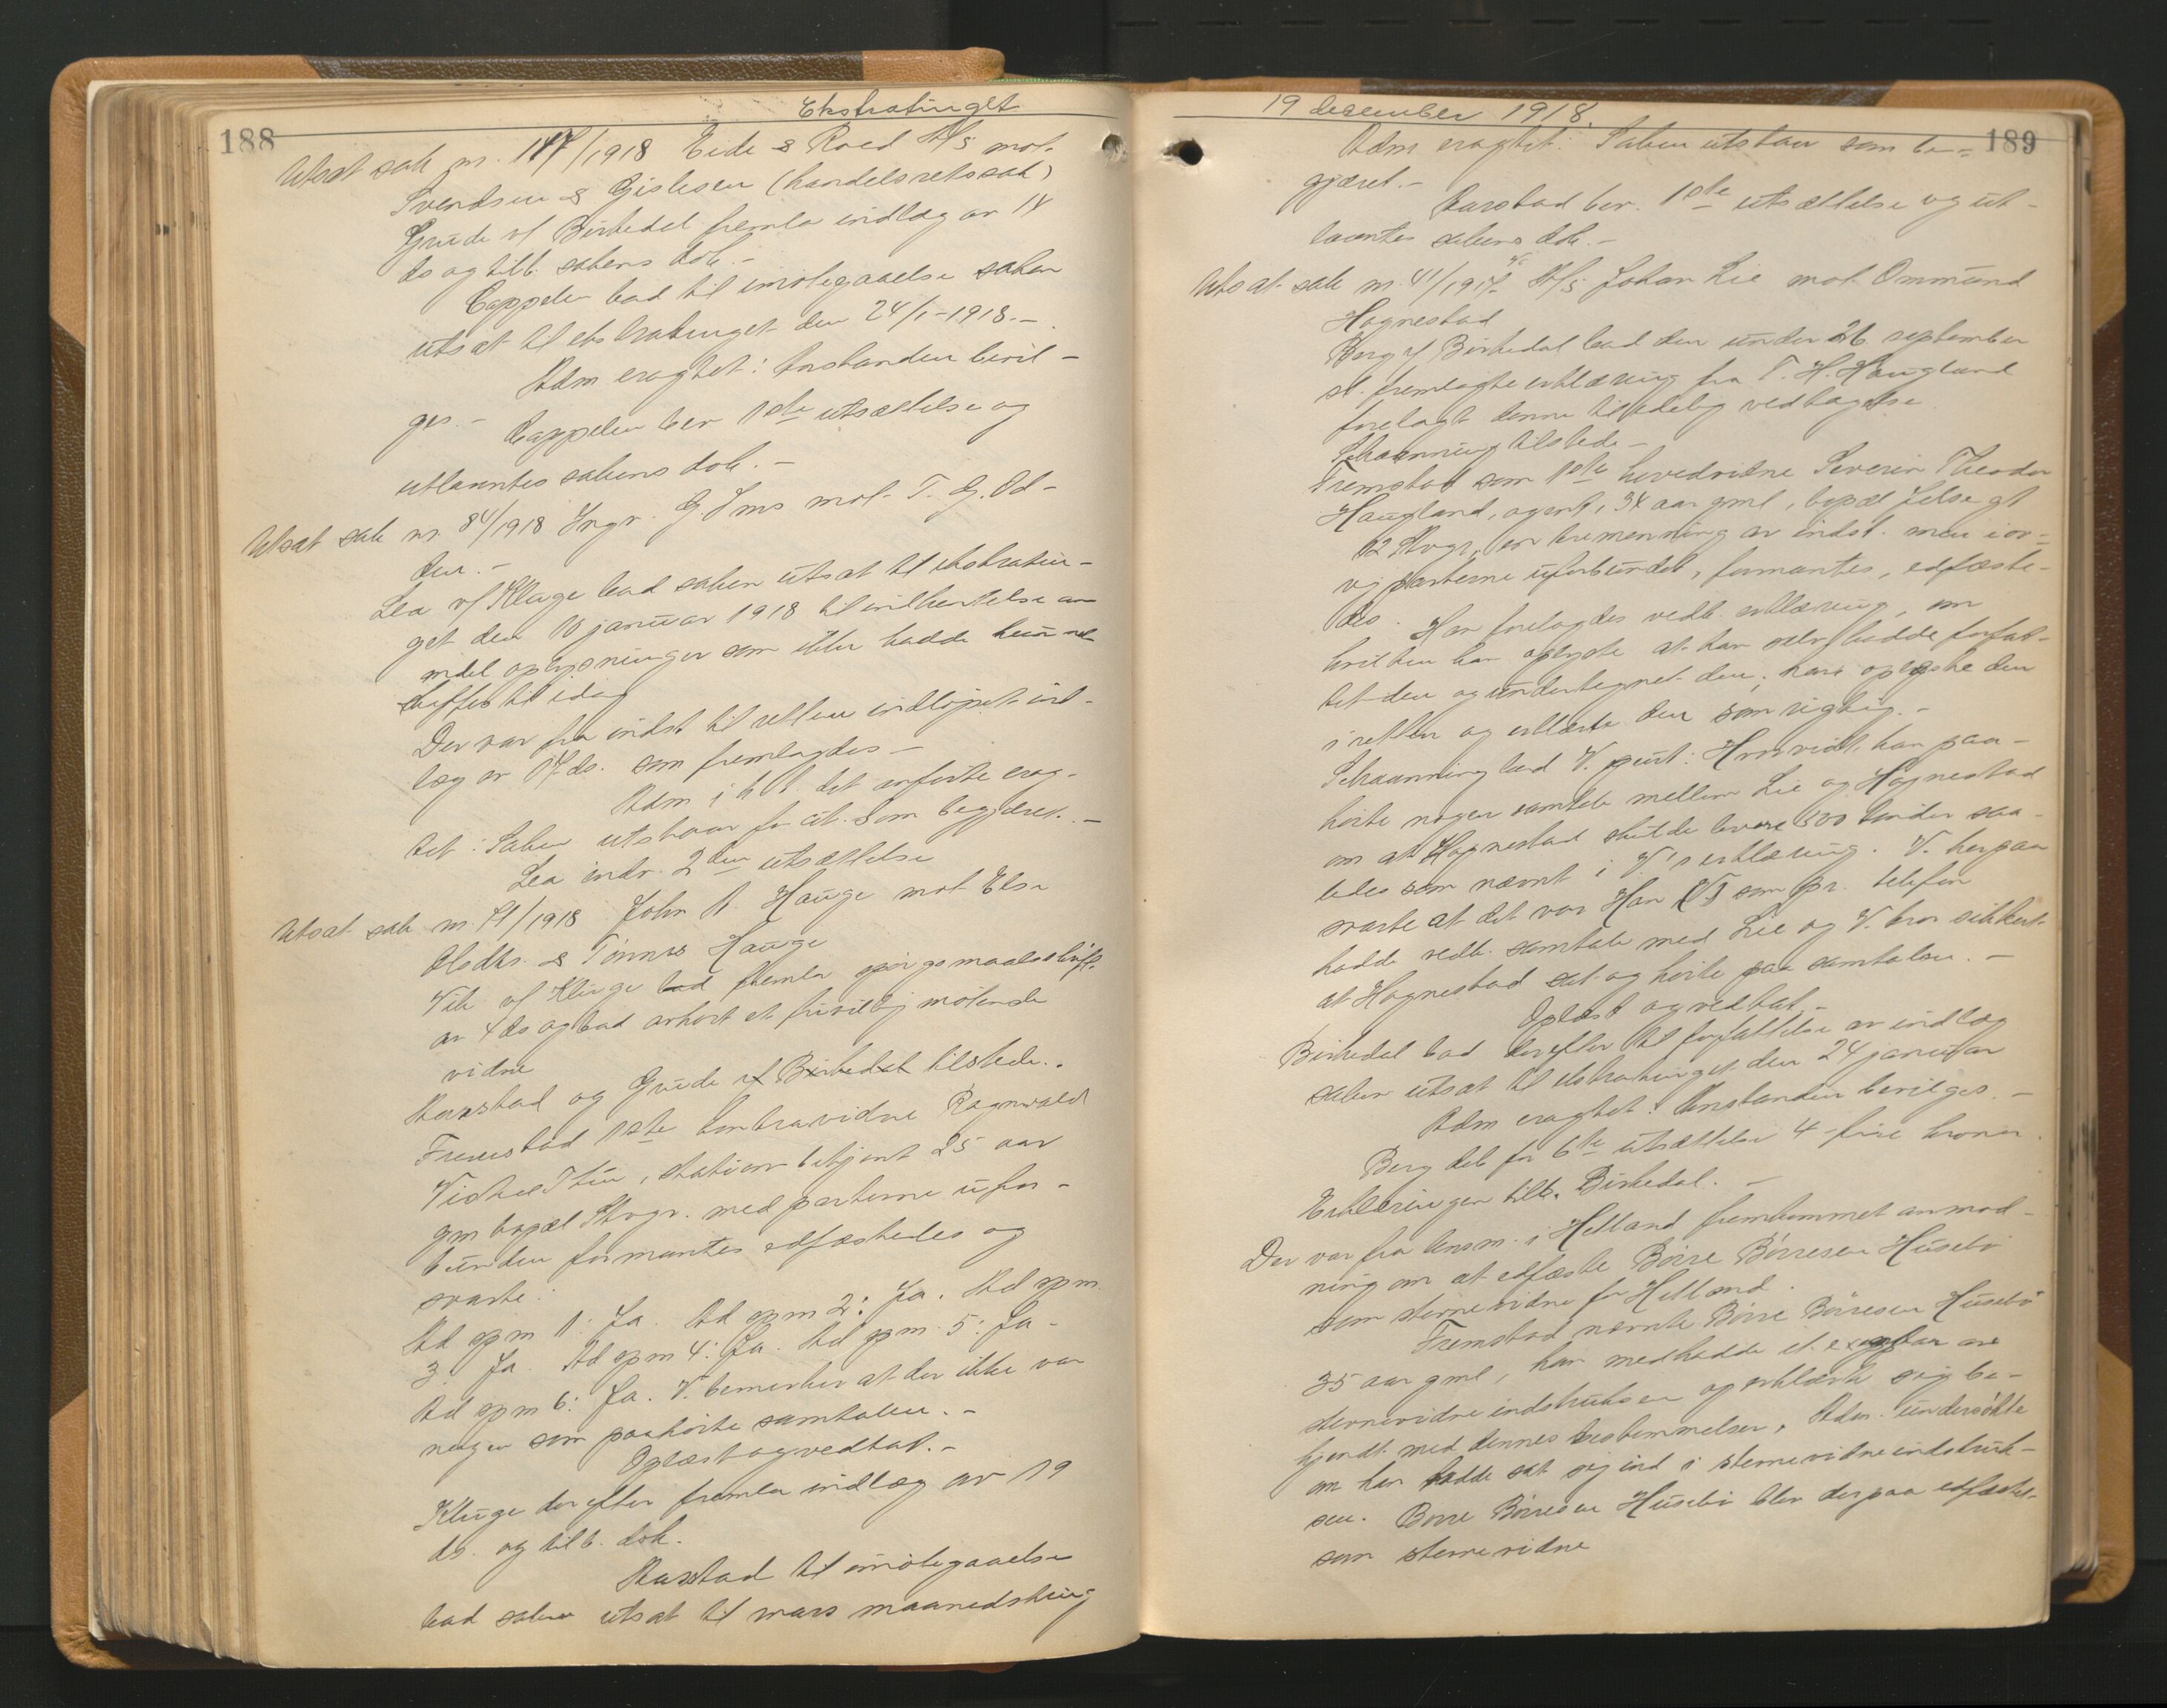 188
Ekstratinget
Utsat sak nr. 147/1918 Eide & Roed A/S mot
Svendsen & Gislesen (handelsretssak)
Grude vf Birkedal fremla indlæg av 14
ds og tilb. sakens dok. -
Cappelen bad til imøtegaaelse saken
utsat til ekstratinget den 24/1-1918. -
Adm eragtet: Anstanden bevil-
ges. -
Cappelen ber 1ste utsættelse og
utlaantes sakens dok. -
Utsat sak nr. 84/1918 Ingr. G. Ims mot T. G. Od-
den. -
Lea vf Kluge bad saken utsat til ekstratin-
get den 10 januar 1918 til indhentelse av
endel oplysninger som ikke hadde kunnet
skaffes til idag
Der var fra indst til retten indløpet ind-
læg av 17 ds. som fremlagdes -
Adm i h t det anførte erag-
tet: Saken utstaar for at. som begjæret. -
Lea indr. 2den utsættelse
Utsat sak nr 91/1918 John A. Hauge mot Else
Olsdtr. & Tønnes Hauge
Vik vf Kluge bad fremla spørgsmaalsskrift
av 4 ds og bad avhørt et frivillig møtende
vidne
Aarstad og Grude vf Birkedal tilstede.
Fremstod 1ste kontravidne Ragnvald
stationsbetjent 25 aar
gm bopæl Stvgr. med parterne ufor-
bunden formantes edfæstedes og
svarte:
Ad spm 1: Ja. Ad spm 2: Ja. Ad spm.
3. Ja. Ad spm 4: Ja. Ad spm. 5: Ja -
Ad spm 6: Ja. V. bemerker at der ikke var
nogen som paahørte samtalen. -
Oplæst og vedtat. -
Kluge derefter fremla indlæg av 19
ds. og tilb. dok.
Aarstad til imøtegaaelse
bad saken utsat til mars maanedsting
19 desember 1918.
189
Adm eragtet: Saken utstaar som be-
gjæret. -
Aarstad ber. 1ste utsættelse og ut-
laantes sakens dok. -
Utsat sak nr. 41/191 A/S Johan Lie mot Ommund
Hognestad
Berg vf Birkedal bad den under 26 september
sl. fremlagte erklæring fra T. H. Haugland
forelagt denne til edelig vedtagelse
Schaanning tilstede -
Fremstod som 1ste hovedvidne Severin Theodor
Haugland, agent, 34 aar gml, bopæl
12 Stvgr, av indst. men iøv-
rig parterne uforbundet, formantes, edfæste-
des. Han forelagdes vedk. erklæring, om
hvilken han oplyste at han selv hadde forfat-
tet den og undertegnet den; han oplæste den
i retten og erklærte den som rigtig. -
Schaanning lod V. spurt: Hvorvidt han paa-
hørte nogen samtale mellem Lie og Hognestad
om at Hognestad skulde levere 500 tønder saa-
ledes som nævnt i V's erklæring. V. herpaa
svarte at det var Han (V) som pr. telefon
hadde vedk. samtale med Lie og V. tror sikkert
at Hognestad sat og hørte paa samtalen. -
Oplæst og vedtat. -
Birkedal bad derefter til forfattelse av indlæg
saken utsat til ekstratinget den 24 januar
Adm eragtet: Anstanden bevilges. -
Berg det for 6te utsættelse 4 - fire kroner.
Erklæringen tilb. Birkedal. -
Der var fra lensm. i Hetland fremkommet anmod-
ning om at edfæste Børre Børresen Husebø
som stevnevidne for Hetland.
Fremstod nævnte Børre Børresen Husebø
35 aar gml, han medhadde et exemplar av
stevnevidneindstruksen og erklærte sig be-
kjendt med dennes bestemmelser. Adm. undersøkte
om han hadde sat sig ind i stevnevidneindstruk-
sen. Børre Børresen Husebø blev derpaa edfæstet
som stevnevidne